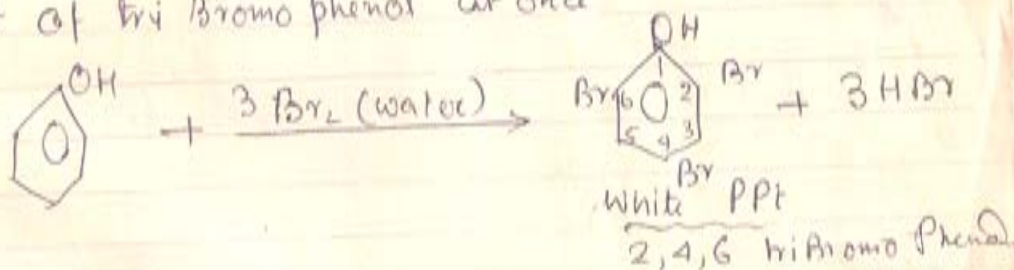 of tri Bromo phenol at once
OH
OH
+ 3 Br2 (water)
Br 6 2 Br + 3 HBr
5 4 3
Br
White PPt
2,4,6 tri Bromo Phenol